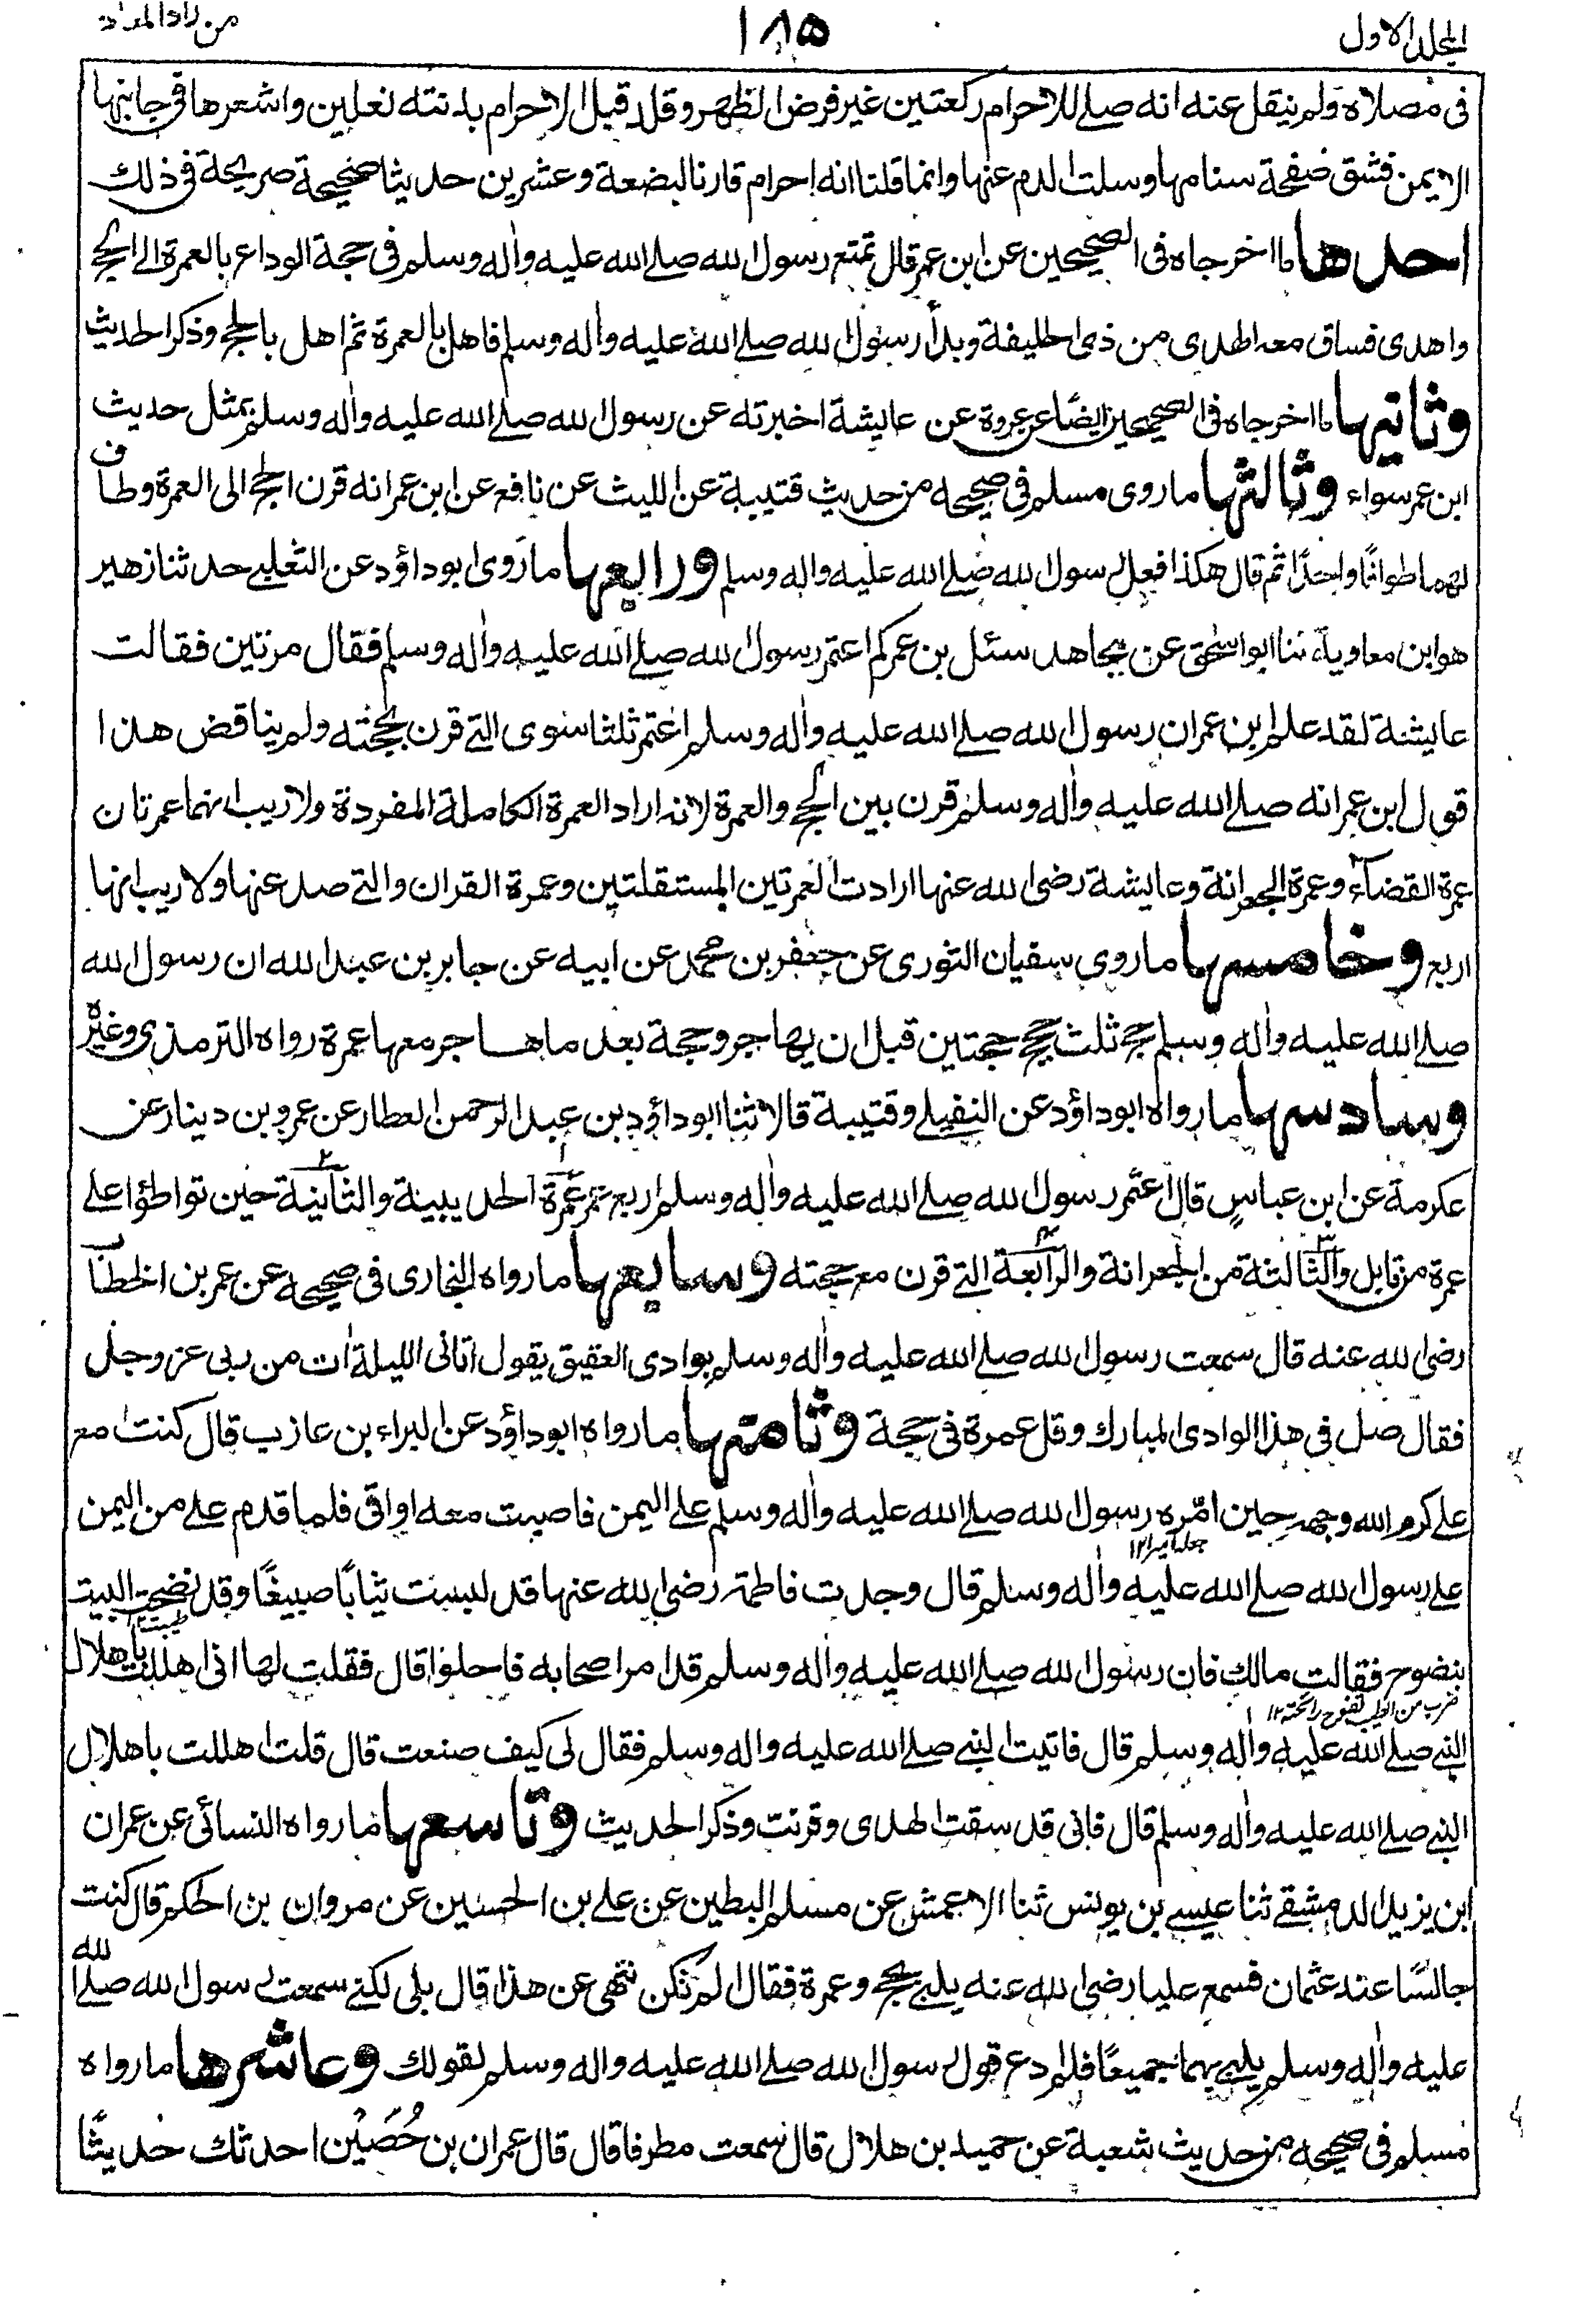 المجلد الاول
١٨٥
من زاد المعاد
فى مصلاه ولم ينقل عنه انه صلے للاحرام ركعتين غير فرض الظهر وقلد قبل الاحرام بدنته نعلين واشعرها فى جانبها
الايمن فشق صفحة سنامها وسلت الدم عنها وانما قلنا انه احرم قارنا لبضعة وعشرين حديثا صحيحة صريحة فى ذلك
احدها ما اخرجاه فى الصحيحين عن ابن عمر قال تمتع رسول الله صلے الله عليه واٰله وسلم فى حجة الوداع بالعمرة الے الحج
واهدى فساق معه الهدى من ذى الحليفة وبدأ رسول الله صلے الله عليه واٰله وسلم فاهل بالعمرة ثم اهل بالحج وذكر الحديث
وثانيها ما اخرجاه فى الصحيحين ايضًا عن عروة عن عايشة اخبرته عن رسول الله صلے الله عليه واٰله وسلم بمثل حديث
ابن عمر سواء وثالثها ما روى مسلم فى صحيحه من حديث قتيبة عن الليث عن نافع عن ابن عمر انه قرن الحج الى العمرة وطاف
لهما طوافًا واحدًا ثم قال هكذا فعل رسول الله صلے الله عليه واله وسلم ورابعها ما روى ابوداؤد عن النفيلے حدثنا زهير
هو ابن معاوية ثنا ابو اسحٰق عن مجاهد سئل بن عمر كم اعتمر رسول الله صلے الله عليه واٰله وسلم فقال مرتين فقالت
عايشة لقد علم ابن عمر ان رسول الله صلے الله عليه واٰله وسلم اعتمر ثلثا سوى التے قرن بحجته ولم يناقض هذا
قول ابن عمر انه صلے الله عليه واٰله وسلم قرن بين الحج والعمرة لانه اراد العمرة الكاملة المفردة ولا ريب انهما عمرتان
عمرة القضاء وعمرة الجعرانة وعايشة رضى الله عنها ارادت العمرتين المستقلتين وعمرة القران والتے صد عنها ولا ريب انها
اربع وخامسها ما روى سفيان الثورى عن جعفر بن محمد عن ابيه عن جابر بن عبد الله ان رسول الله
صلے الله عليه واٰله وسلم حج ثلث حجج حجتين قبل ان يهاجر وحجة بعد ما هاجر معها عمرة رواه الترمذى وغيره
وسادسها ما رواه ابوداؤد عن النفيلے وقتيبة قالا ثنا ابوداؤد بن عبد الرحمن العطار عن عمرو بن دينار عن
عكرمة عن ابن عباس قال اعتمر رسول الله صلے الله عليه واٰله وسلم اربع عمر عمرة الحديبية والثانية حين تواطؤا علے
عمرة من قابل والثالثة من الجعرانة والرابعة التے قرن مع حجته وسابعها ما رواه البخارى فى صحيحه عن عمر بن الخطاب
رضى الله عنه قال سمعت رسول الله صلے الله عليه واٰله وسلم بوادى العقيق يقول اتانى الليلة اٰت من ربى عز وجل
فقال صل فى هذا الوادى المبارك وقل عمرة فى حجة وثامنها ما رواه ابوداؤد عن البراء بن عازب قال كنت مع
علے كرم الله وجهه حين امّره رسول الله صلے الله عليه واٰله وسلم علے اليمن فاصبت معه اواقى فلما قدم علے من اليمن
جعله اميرا ١٢
علے رسول الله صلے الله عليه واٰله وسلم قال وجدت فاطمة رضى الله عنها قد لبست ثيابًا صبيغًا وقد نضحت البيت
طيبت ١٢
بنضوح فقالت مالك فان رسول الله صلے الله عليه واٰله وسلم قد امر اصحابه فاحلوا قال فقلت لها انى اهللت باهلال
ضرب من الطيب تفوح رائحته ١٢
النبے صلے الله عليه واٰله وسلم قال فاتيت النبے صلے الله عليه واله وسلم فقال لى كيف صنعت قال قلت اهللت باهلال
النبے صلے الله عليه واٰله وسلم قال فانى قد سقت الهدى وقرنت وذكر الحديث وتاسعها ما رواه النسائى عن عمران
ابن يزيد الدمشقے ثنا عيسے بن يونس ثنا الاعمش عن مسلم البطين عن علے بن الحسين عن مروان بن الحكم قال كنت
جالسًا عند عثمان فسمع عليا رضى الله عنه يلبے بحج وعمرة فقال الم تكن تنهى عن هذا قال بلى لكنے سمعت رسول الله صلے الله
عليه واٰله وسلم يلبے بهما جميعًا فلم ادع قول رسول الله صلے الله عليه واله وسلم لقولك وعاشرها ما رواه
مسلم فى صحيحه من حديث شعبة عن حميد بن هلال قال سمعت مطرفا قال قال عمران بن حُصَيْن احدثك حديثًا